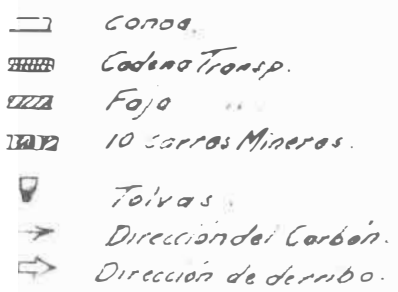 Canoa.
Cadena Transp.
Faja "
10 carros Mineros.
Tolvas
Dirección del Carbón.
Dirección de derribo.